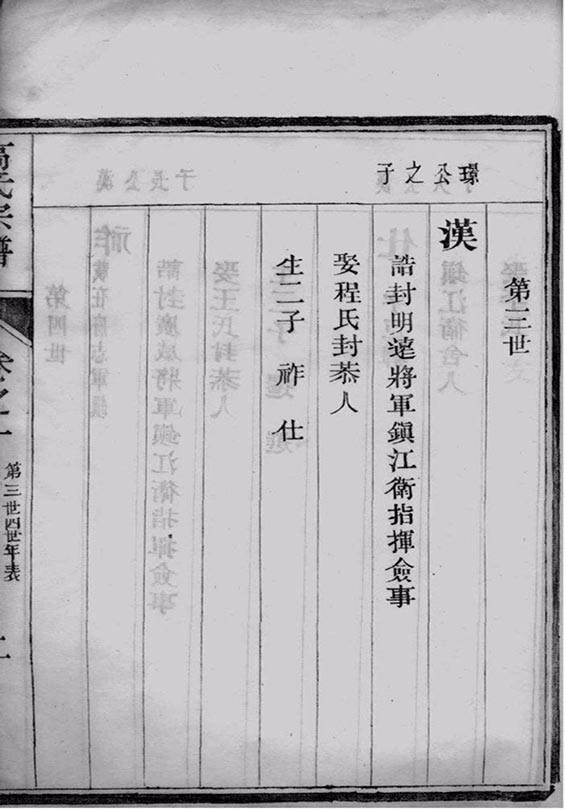 第三世
璟公之子
漢
誥封明逺將軍鎭江衛指揮僉事
娶程氏封恭人
生二子　祚　仕
高氏宗譜
卷之一
第三世四世年表